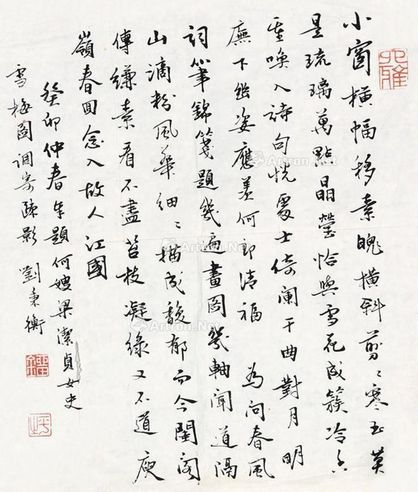 小窗橫幅移素魄橫斜剪〻寒玉莫
是琉璃萬點晶瑩恰與雪花成簇冷香
重喚入詩句恍處士倚闌干曲對月明
廡下幽姿應羨何郎清福 為問春風
詞筆錦箋題幾遍畫圖幾軸聞道隔
山滴粉風華細〻描成馥郁而今閨閣
傳縑素看不盡苔枝凝綠又不道庾
嶺春回念入故人江國
癸卯仲春奉題何嫂梁潔貞女史
雪梅圖調寄疎影 劉秉衡